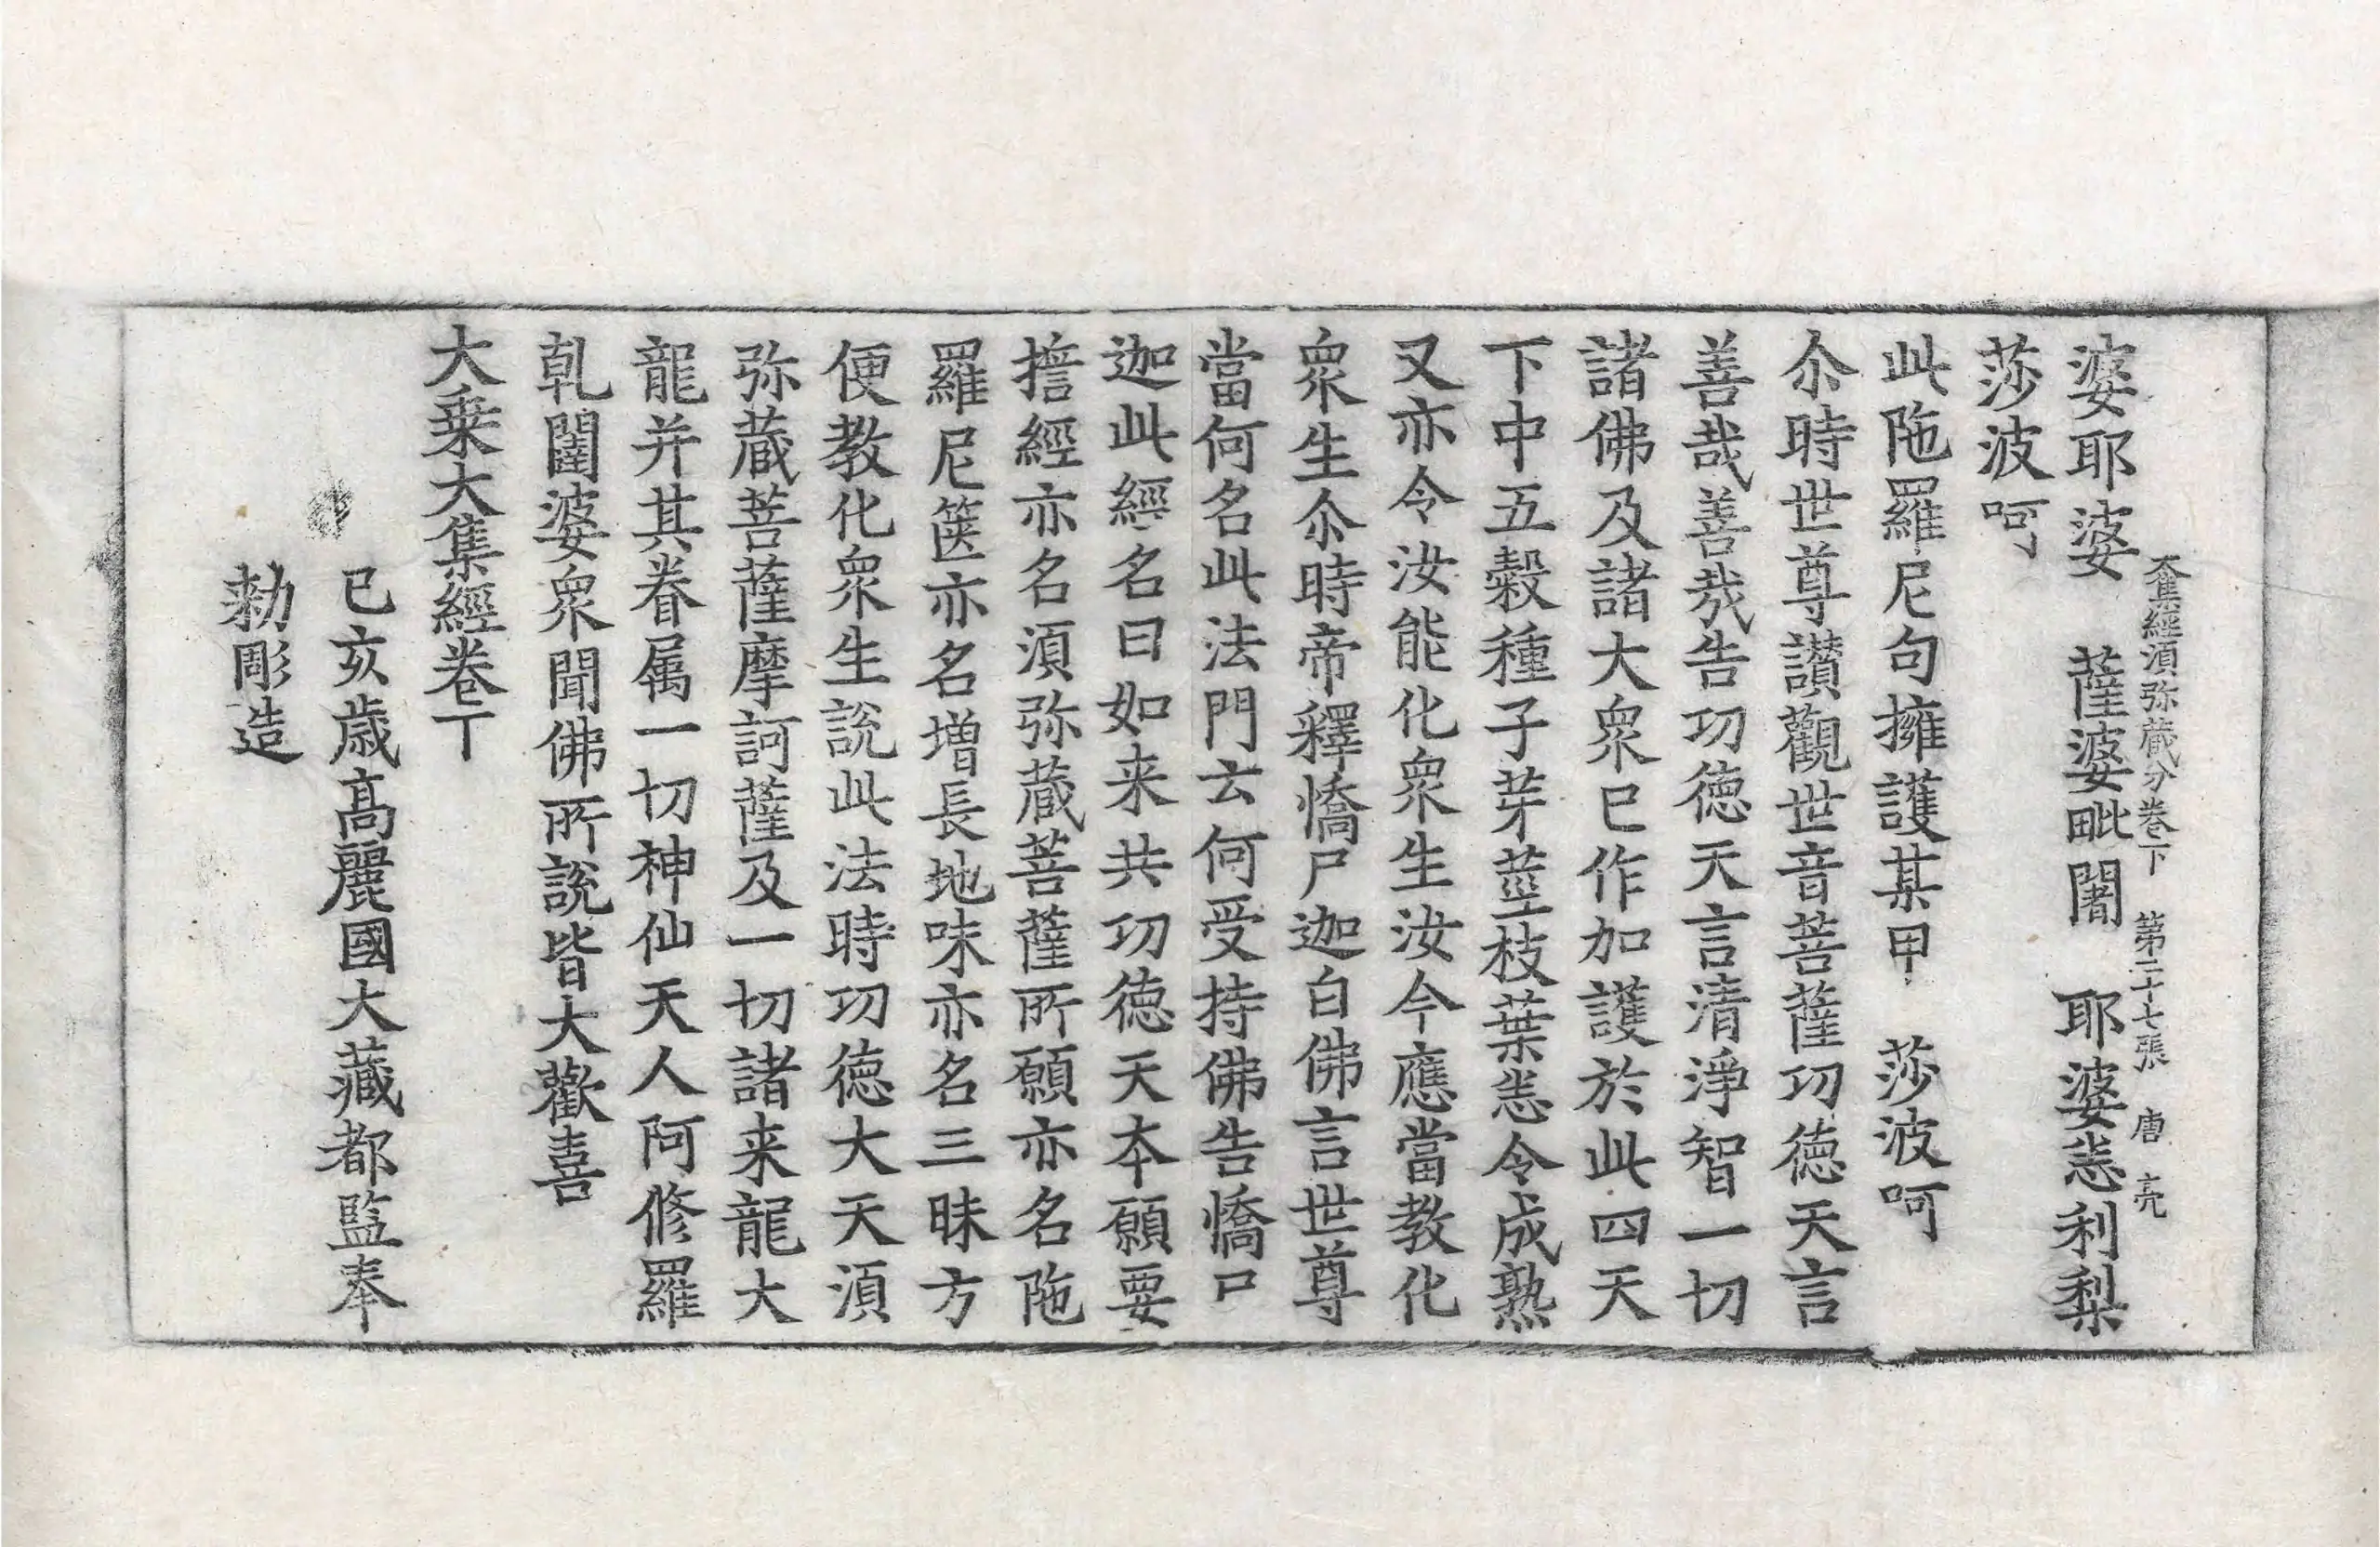 大集經須弥藏分卷下　第二十七張　唐　亮
婆耶婆　薩婆毗闍　耶婆恙利梨
莎波呵
此陁羅尼句擁護某甲　莎波呵
尒時世尊讃觀世音菩薩功徳天言
善哉善哉告功徳天言清淨智一切
諸佛及諸大衆已作加護於此四天
下中五穀種子芽莖枝葉恙令成熟
又亦令汝能化衆生汝今應當教化
衆生尒時帝釋憍尸迦白佛言世尊
當何名此法門云何受持佛告憍尸
迦此經名曰如来共功徳天本願要
擔經亦名須弥藏菩薩所願亦名陁
羅尼篋亦名增長地味亦名三昧方
便教化衆生說此法時功徳大天須
弥藏菩薩摩訶薩及一切諸来龍大
龍并其眷属一切神仙天人阿修羅
乹闥婆衆聞佛所說皆大歡喜
大乗大集經卷下
己亥歳髙麗國大藏都監奉
勑彫造